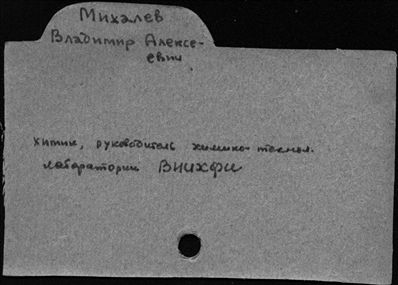 Михалев
Владимир Алексе-
евич
химик, руководитель химико-технол.
лаборатории ВНИХФИ